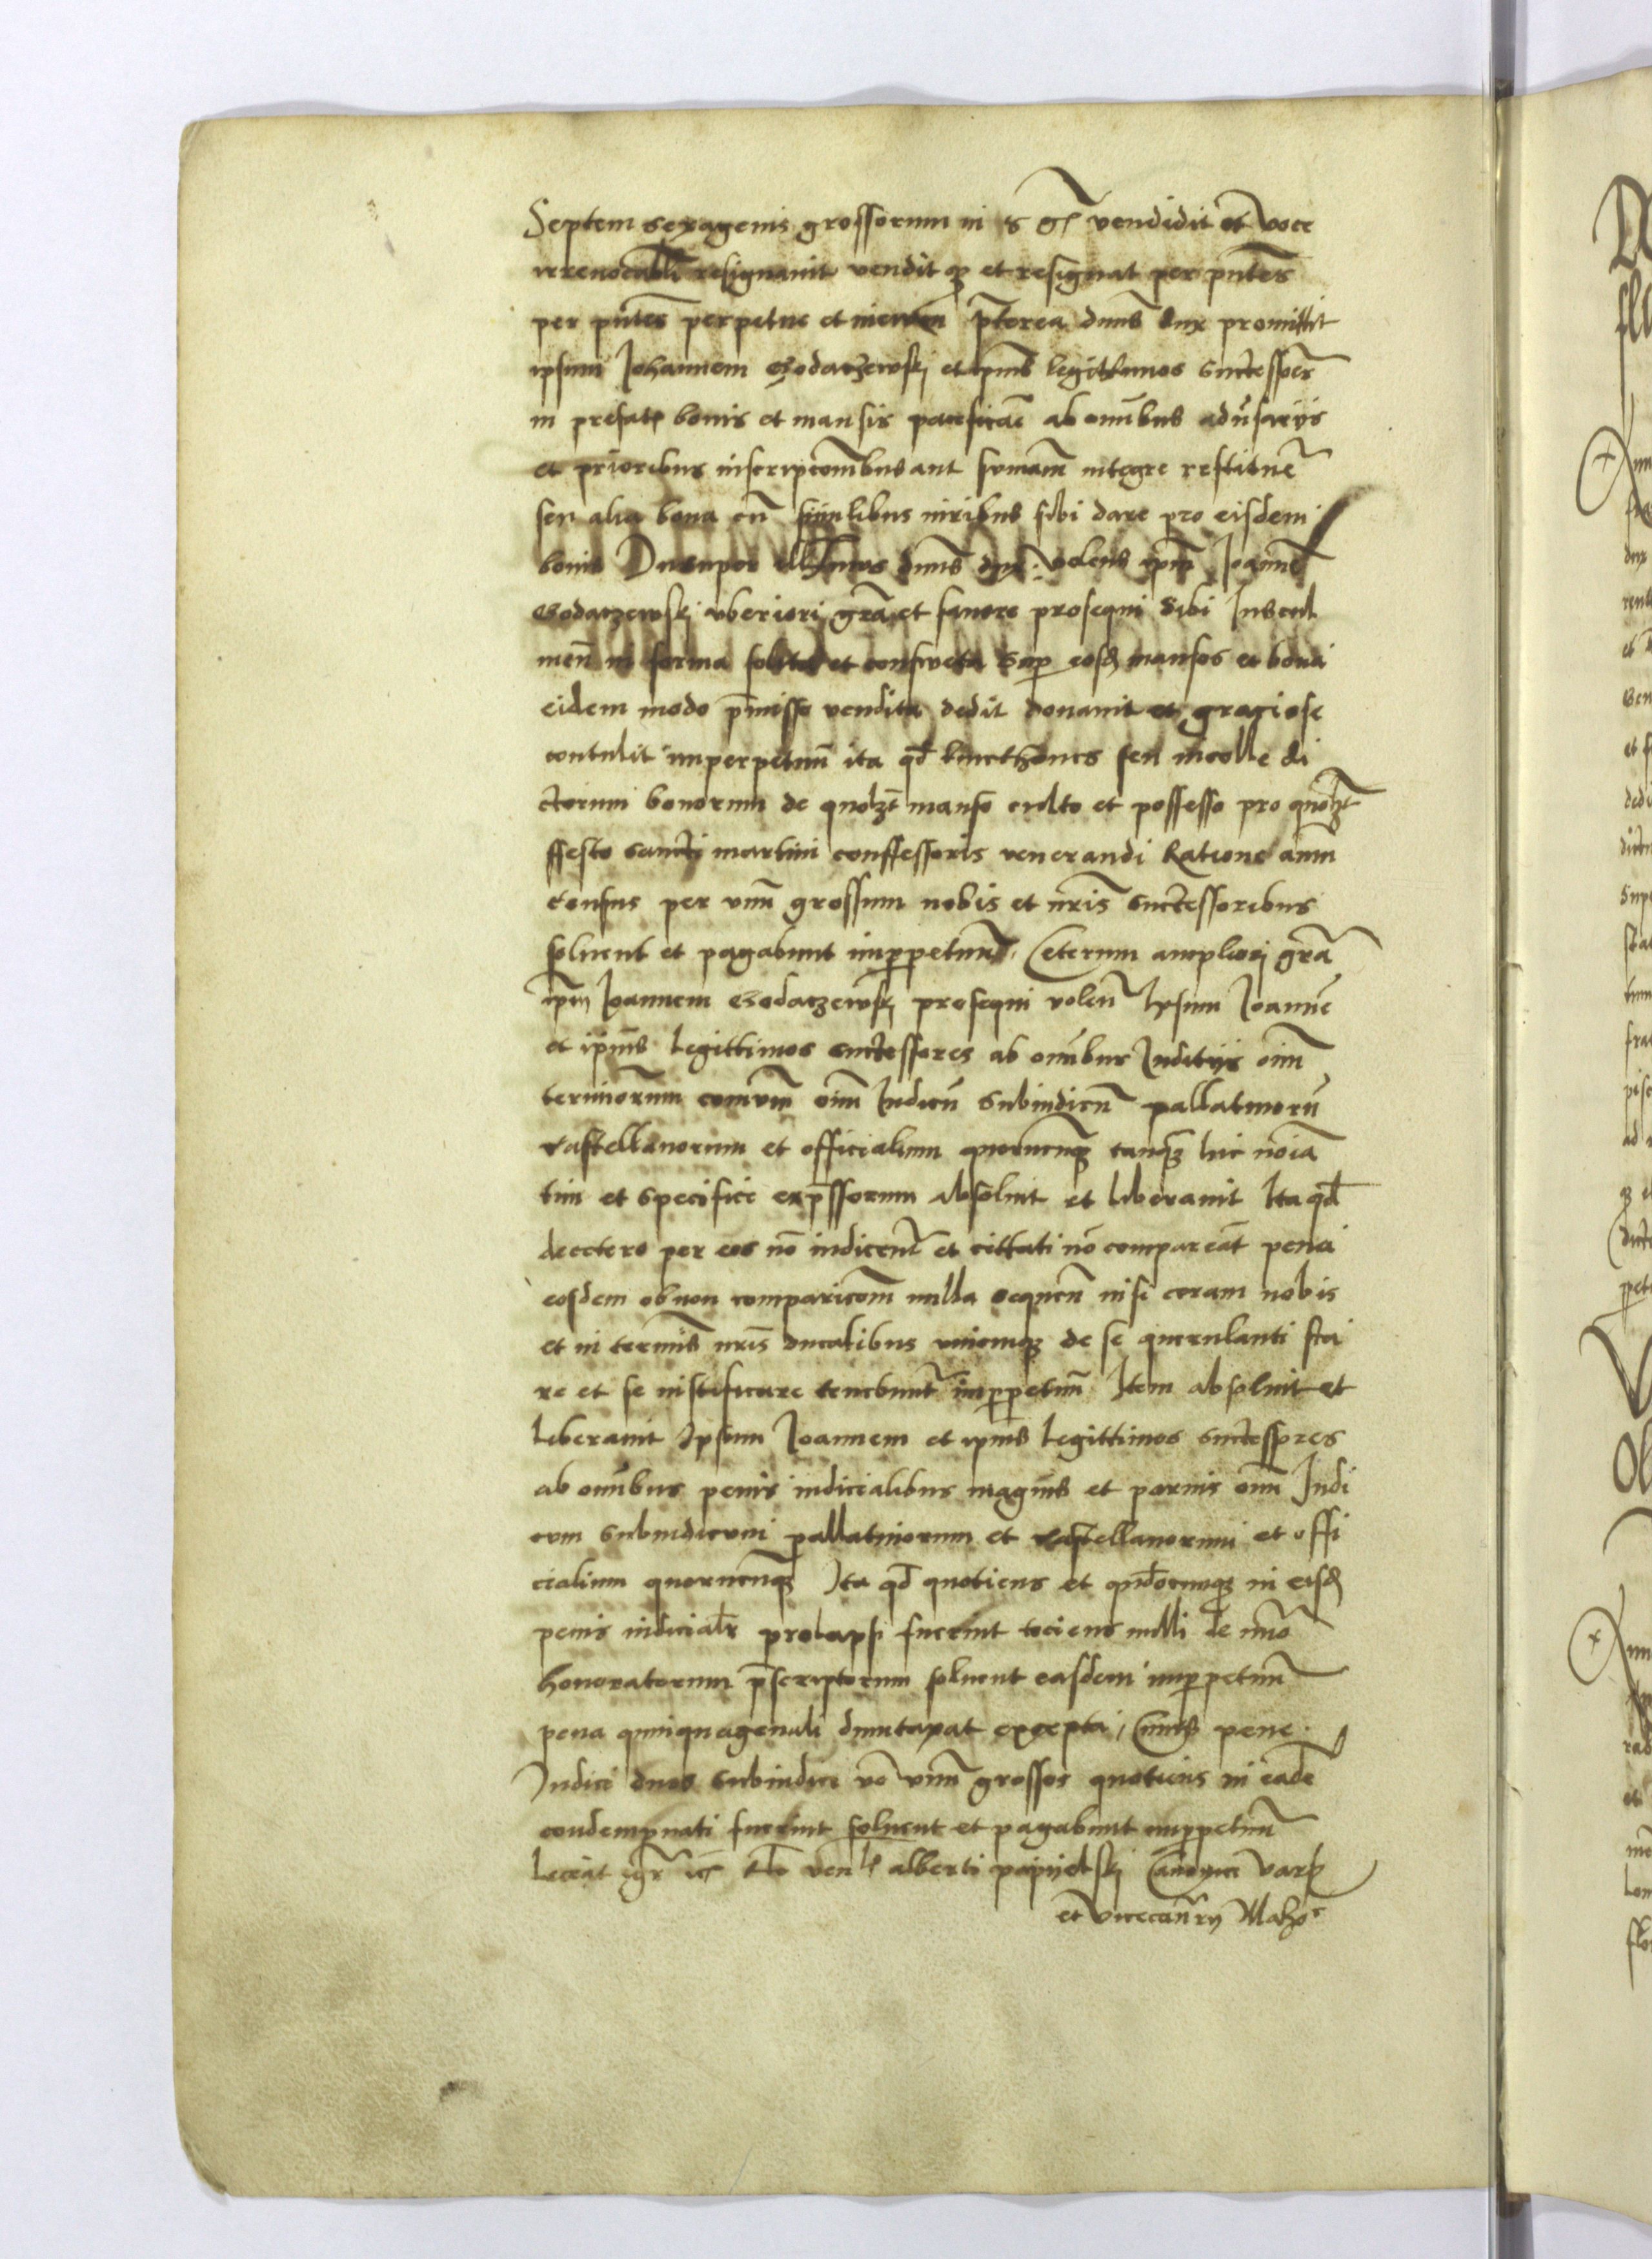 Septem sexagenis grossorum in vendidit et voce
irrevocabli resignavit vendit q3 et resignat per pntes
per pntes perpetue et Pterea dnus dux promittit
ipsum Johannem Godaczewskj et ipius legithimos successores
in prefatis bonis et mansis pacificare ab omibus adusarijs
et prioribus inscripcombus aut sumam integre restituere
seu alia bona cu similibus iuribus sibi dare pro eisdem
bonis Insuper dnus dux volens ipm Joanne
Godaczewskj uberiori gra et favore prosequi sibi Juscul
men in forma solita et consueta sup eosd mansos et bona
eidem modo pmisso vendita dedit donavit et graciose
contulit imperpetuum ita qd kmethones seu incolle di
ctorum bonorum de quolzt manso culto et possesso pro quolzt
ffesto sancti martini conffessoris venerandi Ratione annui
census per unu grossum nobis et nris successoribus
solvent et pagabunt imperpetuu Ceterum ampliori gra
ipm Joannem Godaczewskj prosequi volen Ipsum Joanne
et ipius legittimos successores ab omibus Juditijs oim
terminorum oim Judicu Subiudicu pallatinoru
Castellanorum et officialium quorucuq3 tanq3 hic noia
tim et specifice expssorum absolvit et liberavit Ita qd
decetero per eos no iudicent et cittati no compareat pena
eosdem ob non comparicom nulla sequen nisi coram nobis
et in termis nris ducalibus unicuiq3 de se querulanti sta
re et se iustificare tenebunt imperpetuu Item absolvit et
liberavit Ipsum Joannem et ipius legittimos successores
ab omibus penis iudicialibus magnis et parvis oim Judi
cum Subiudicum pallatinorum et Castellanorum et offi
cialium quorucuq3 Ita qd quotiens et qndocumq3 in eisd
penis iudicialr prolapsi fuerint tociens nulli de nuo
honoratorum pscriptorum solvent easdem imperpetuu
pena quinquagenali dumtaxat excepta Cuius pene
Judici duos Subiudici vo unu grossos quotiens in eade
condempnati fuerint solvent et pagabunt imperpetuu
alberti papijelskj Canonici Vars
et Vicecanrij Mazo